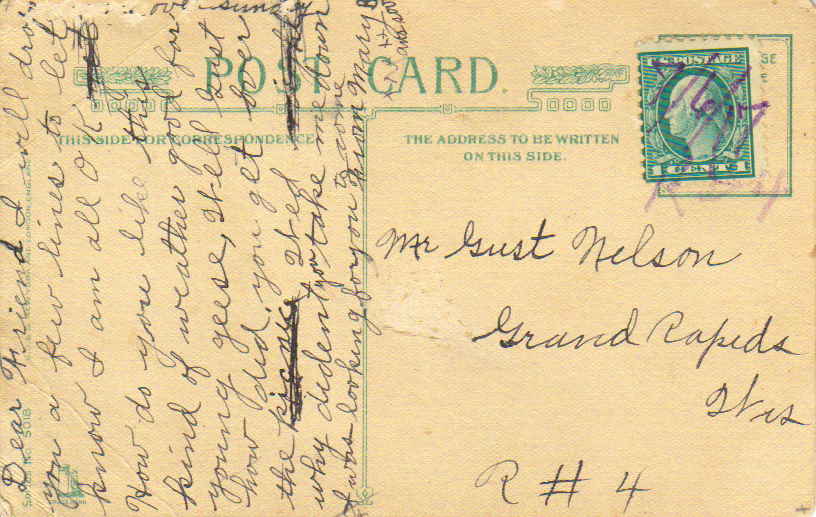 POST CARD.
THIS SIDE FOR CORRESPONDENCE
THE ADDRESS TO BE WRITTEN
ON THIS SIDE.
U.S. POSTAGE
Mr Gust Nelson
Grand Rapids
Wis
R # 4
Dear Friend I will drop
you a few lines to let
know I am all OK
How do you like this
kind of weather good for
young geese, Well last
how did you get over
the Wed
why dident you take me down
I was looking for you to come
Mary
over sunday